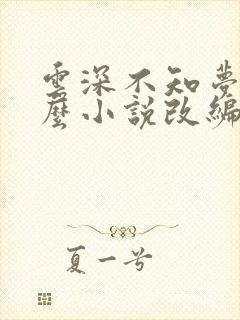 雲深不知夢
麼小說改編
夏一兮